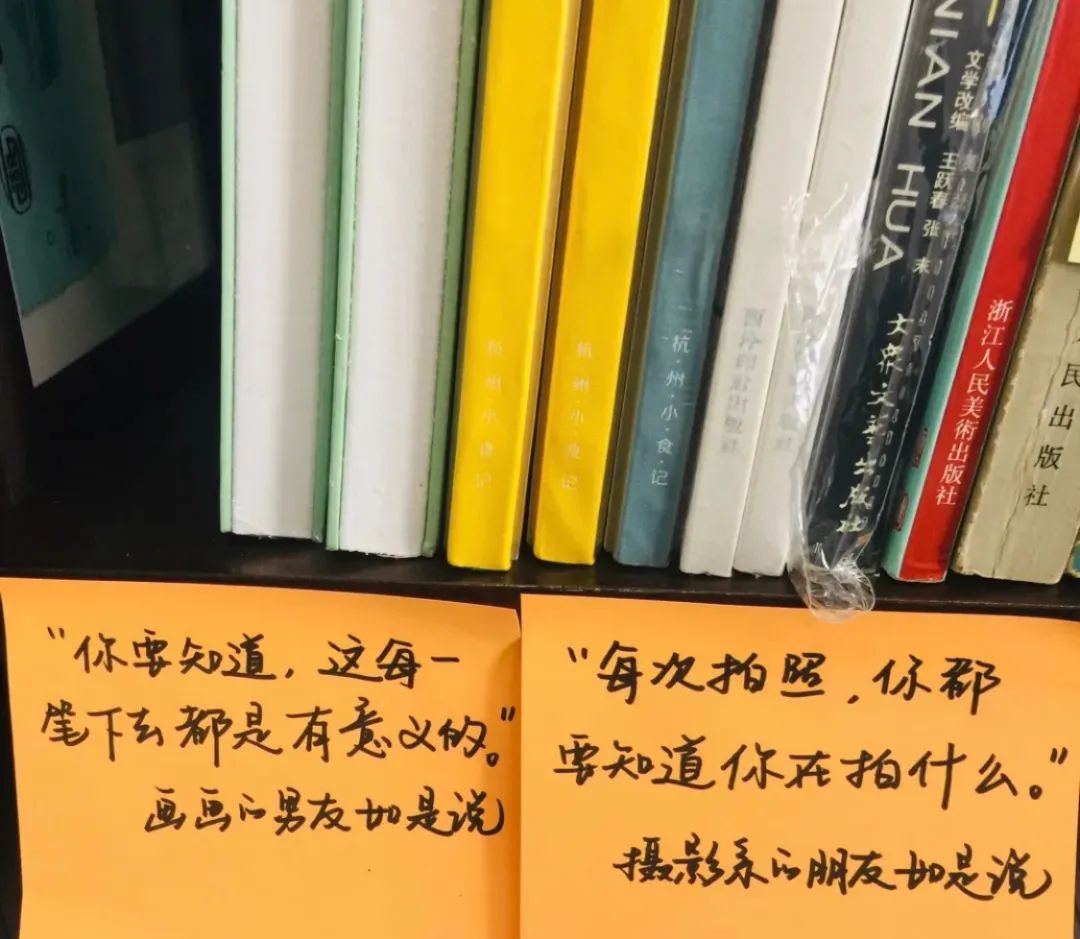 杭州小食记
杭·州·小·食·记
二杭·州·小·食·记
NIAN HUA
文学改编
王跃春 张未
大众文艺出版社
浙江人民美術出版社
民出版社
“你要知道，这每一
笔下去都是有意义的。”
画画的男友如是说
“每次拍照，你都
要知道你在拍什么。”
摄影系的朋友如是说